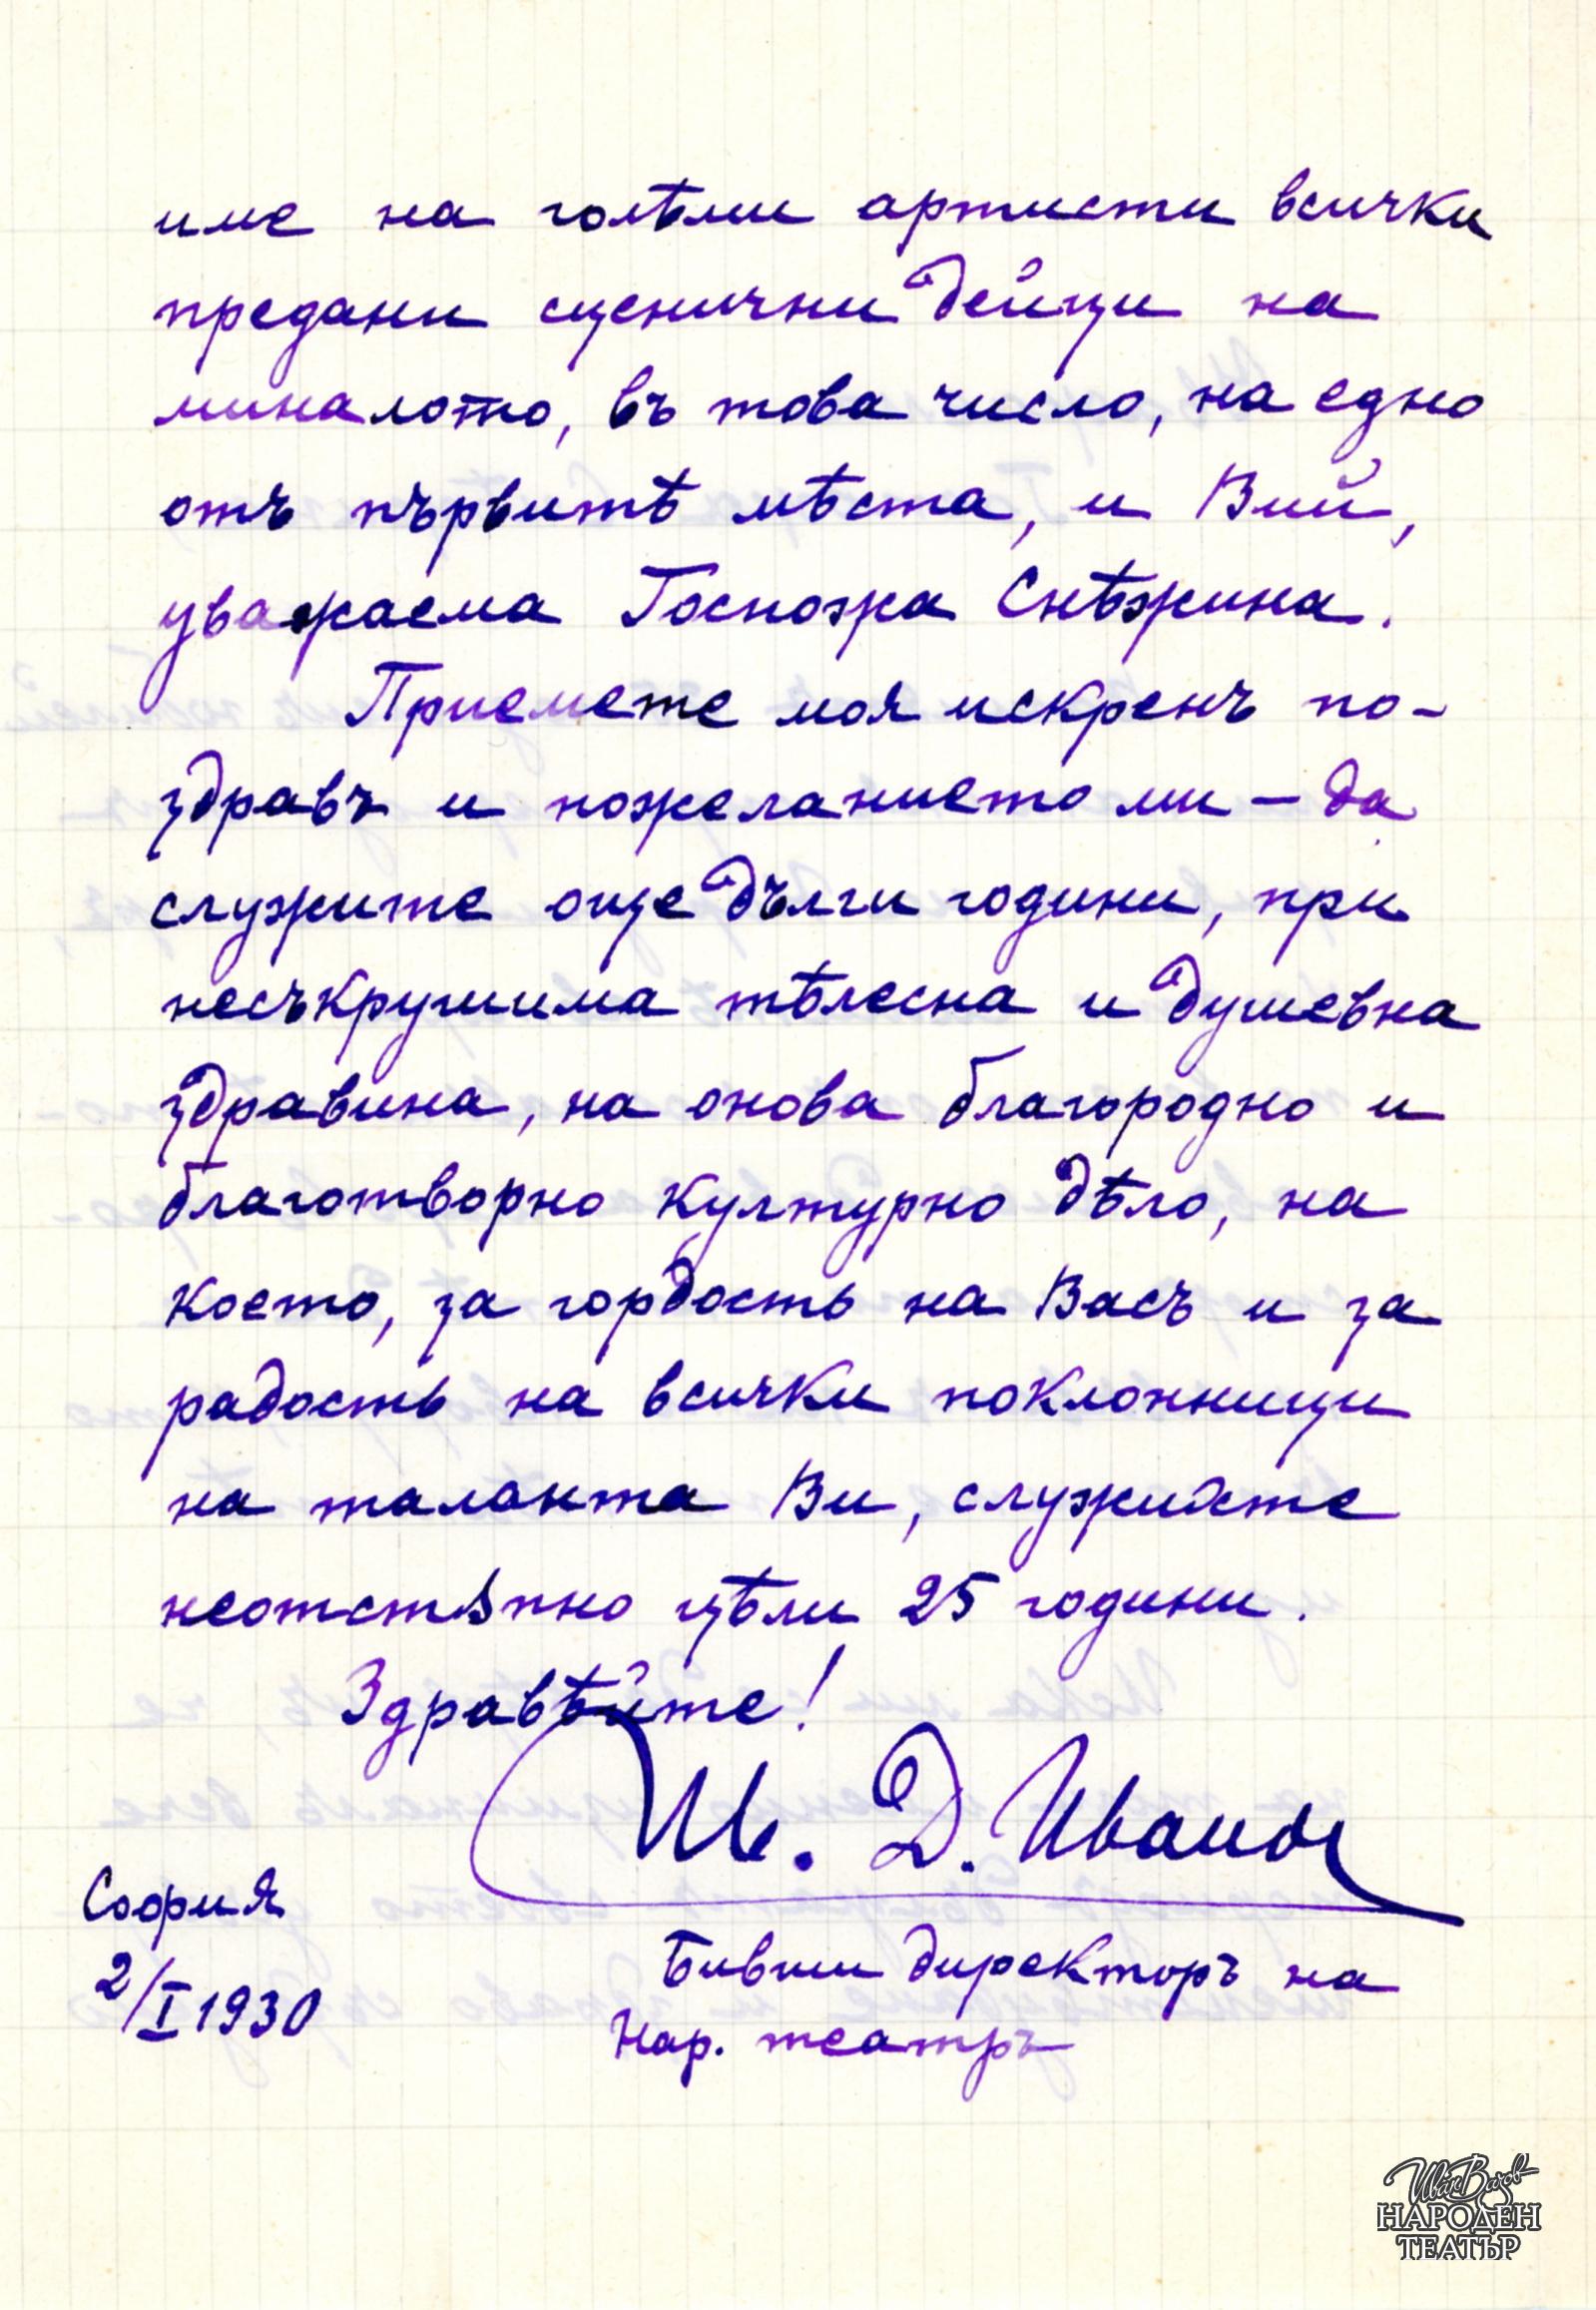 име на голѣми артисти всички
предани сценични дейци на
миналото, въ това число, на едно
отъ първитѣ мѣста, и Вий,
уважаема Госпожа Снѣжина.
Приемете моя искренъ по-
здравъ и пожеланието ми – да
служите още дълги години, при
несъкрушима тѣлесна и душевна
здравина, на онова благородно и
благотворно културно дѣло, на
което, за гордость на Васъ и за
радость на всички поклонници
на таланта Ви, служийте
неотстѫпно цѣли 25 години.
Здравѣйте!
Ив. Д. Иванов
София
2/I 1930
Бивши директоръ на
Нар. театръ
Иван Вазов
НАРОДЕН
ТЕАТЪР